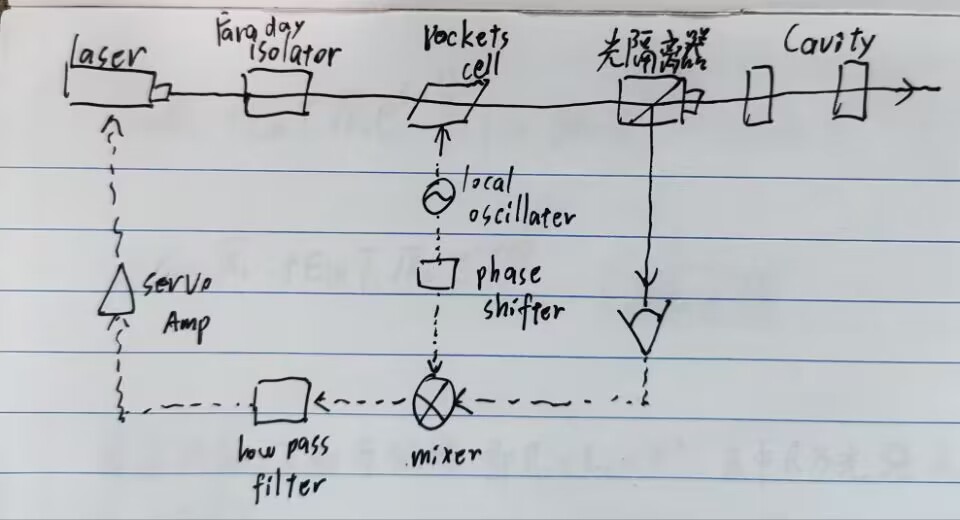 laser
Faraday
isolator
Pockets
cell
光隔离器
Cavity
local
oscillater
phase
shifter
servo
Amp
low pass
filter
mixer